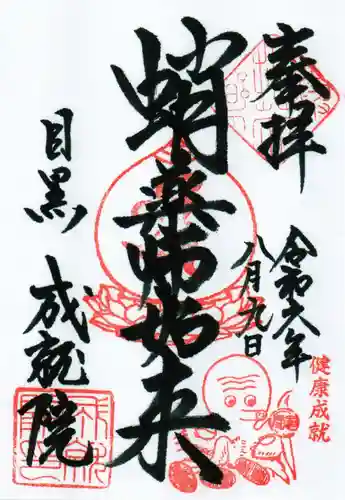 奉拝
令和六年
八月九日
健康成就
蛸薬師如来
目黒 成就院